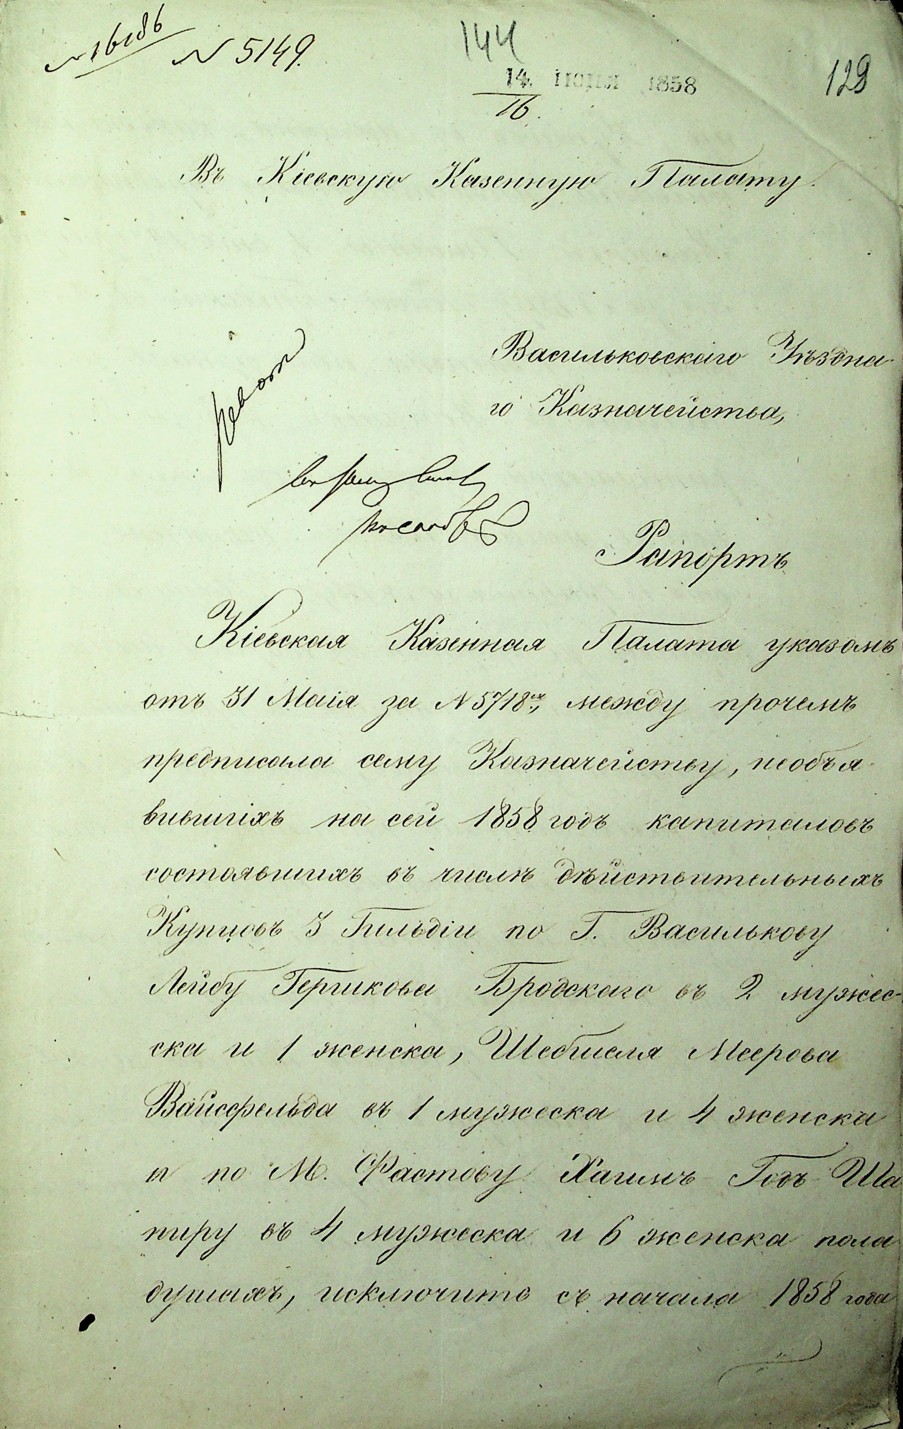 № 16186
№ 5149.
144
14 ИЮНЯ 1858
16.
129
Въ Кіевскую Казенную Палату.
Васильковскаго Уѣздна-
го Казначейства,
Рапортъ
Кіевская Казенная Палата указомъ
отъ 31 Маія за №5718мъ, между прочемъ
предписала сему Казначейству, необъя-
вившихъ на сей 1858 годъ капиталовъ
состоявшихъ въ числѣ дѣйствительныхъ
Купцовъ 3 Гильдіи по Г. Василькову
Лейбу Гершкова Бродскаго въ 2 мужес-
ка и 1 женска, Шебшеля Меерова
Вайсфельда въ 1 мужеска и 4 женска
и по М. Фастову Хаимъ Годъ Ша
пиру въ 4 мужеска и 6 женска пола
душахъ, исключить съ начала 1858 года